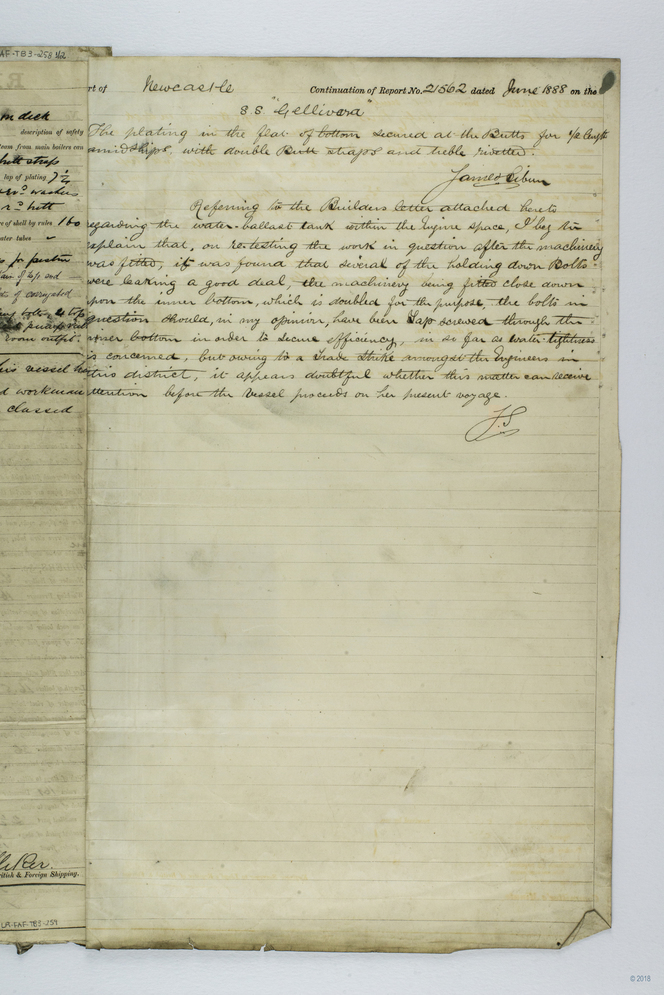 AF-TB3-258 1/2
rt of Newcastle Continuation of Report No. 21562 dated June 1888 on the
S.S. "Gellivara"
The plating in the flat of bottom secured at the Butts for 1/2 length
amidships, with double Butt straps and treble rivetted.
James
Referring to the Builders letter attached hereto
regarding the water-ballast tank within the Engine space, I beg to
explain that, on re-testing the work in question after the machinery
was fitted, it was found that several of the holding down Bolts
were leaking a good deal, the machinery being fitted close down
upon the inner bottom, which is doubled for the purpose, the bolts in
question should, in my opinion, have been Tap screwed through the
inner bottom in order to secure efficiency, in so far as water tightness
is concerned, but owing to a Trade Strike amongst the Engineers in
this district, it appears doubtful whether this matter can receive
attention before the Vessel proceeds on her present voyage.
J.S
description of safety
from main boilers can
butt straps
lap of plating
washers
butt
re of shell by rules 160
ater tubes
room outfit.
his vessel
d workman
classed
ritish & Foreign Shipping.
LR-FAF-TB3-259
© 2018